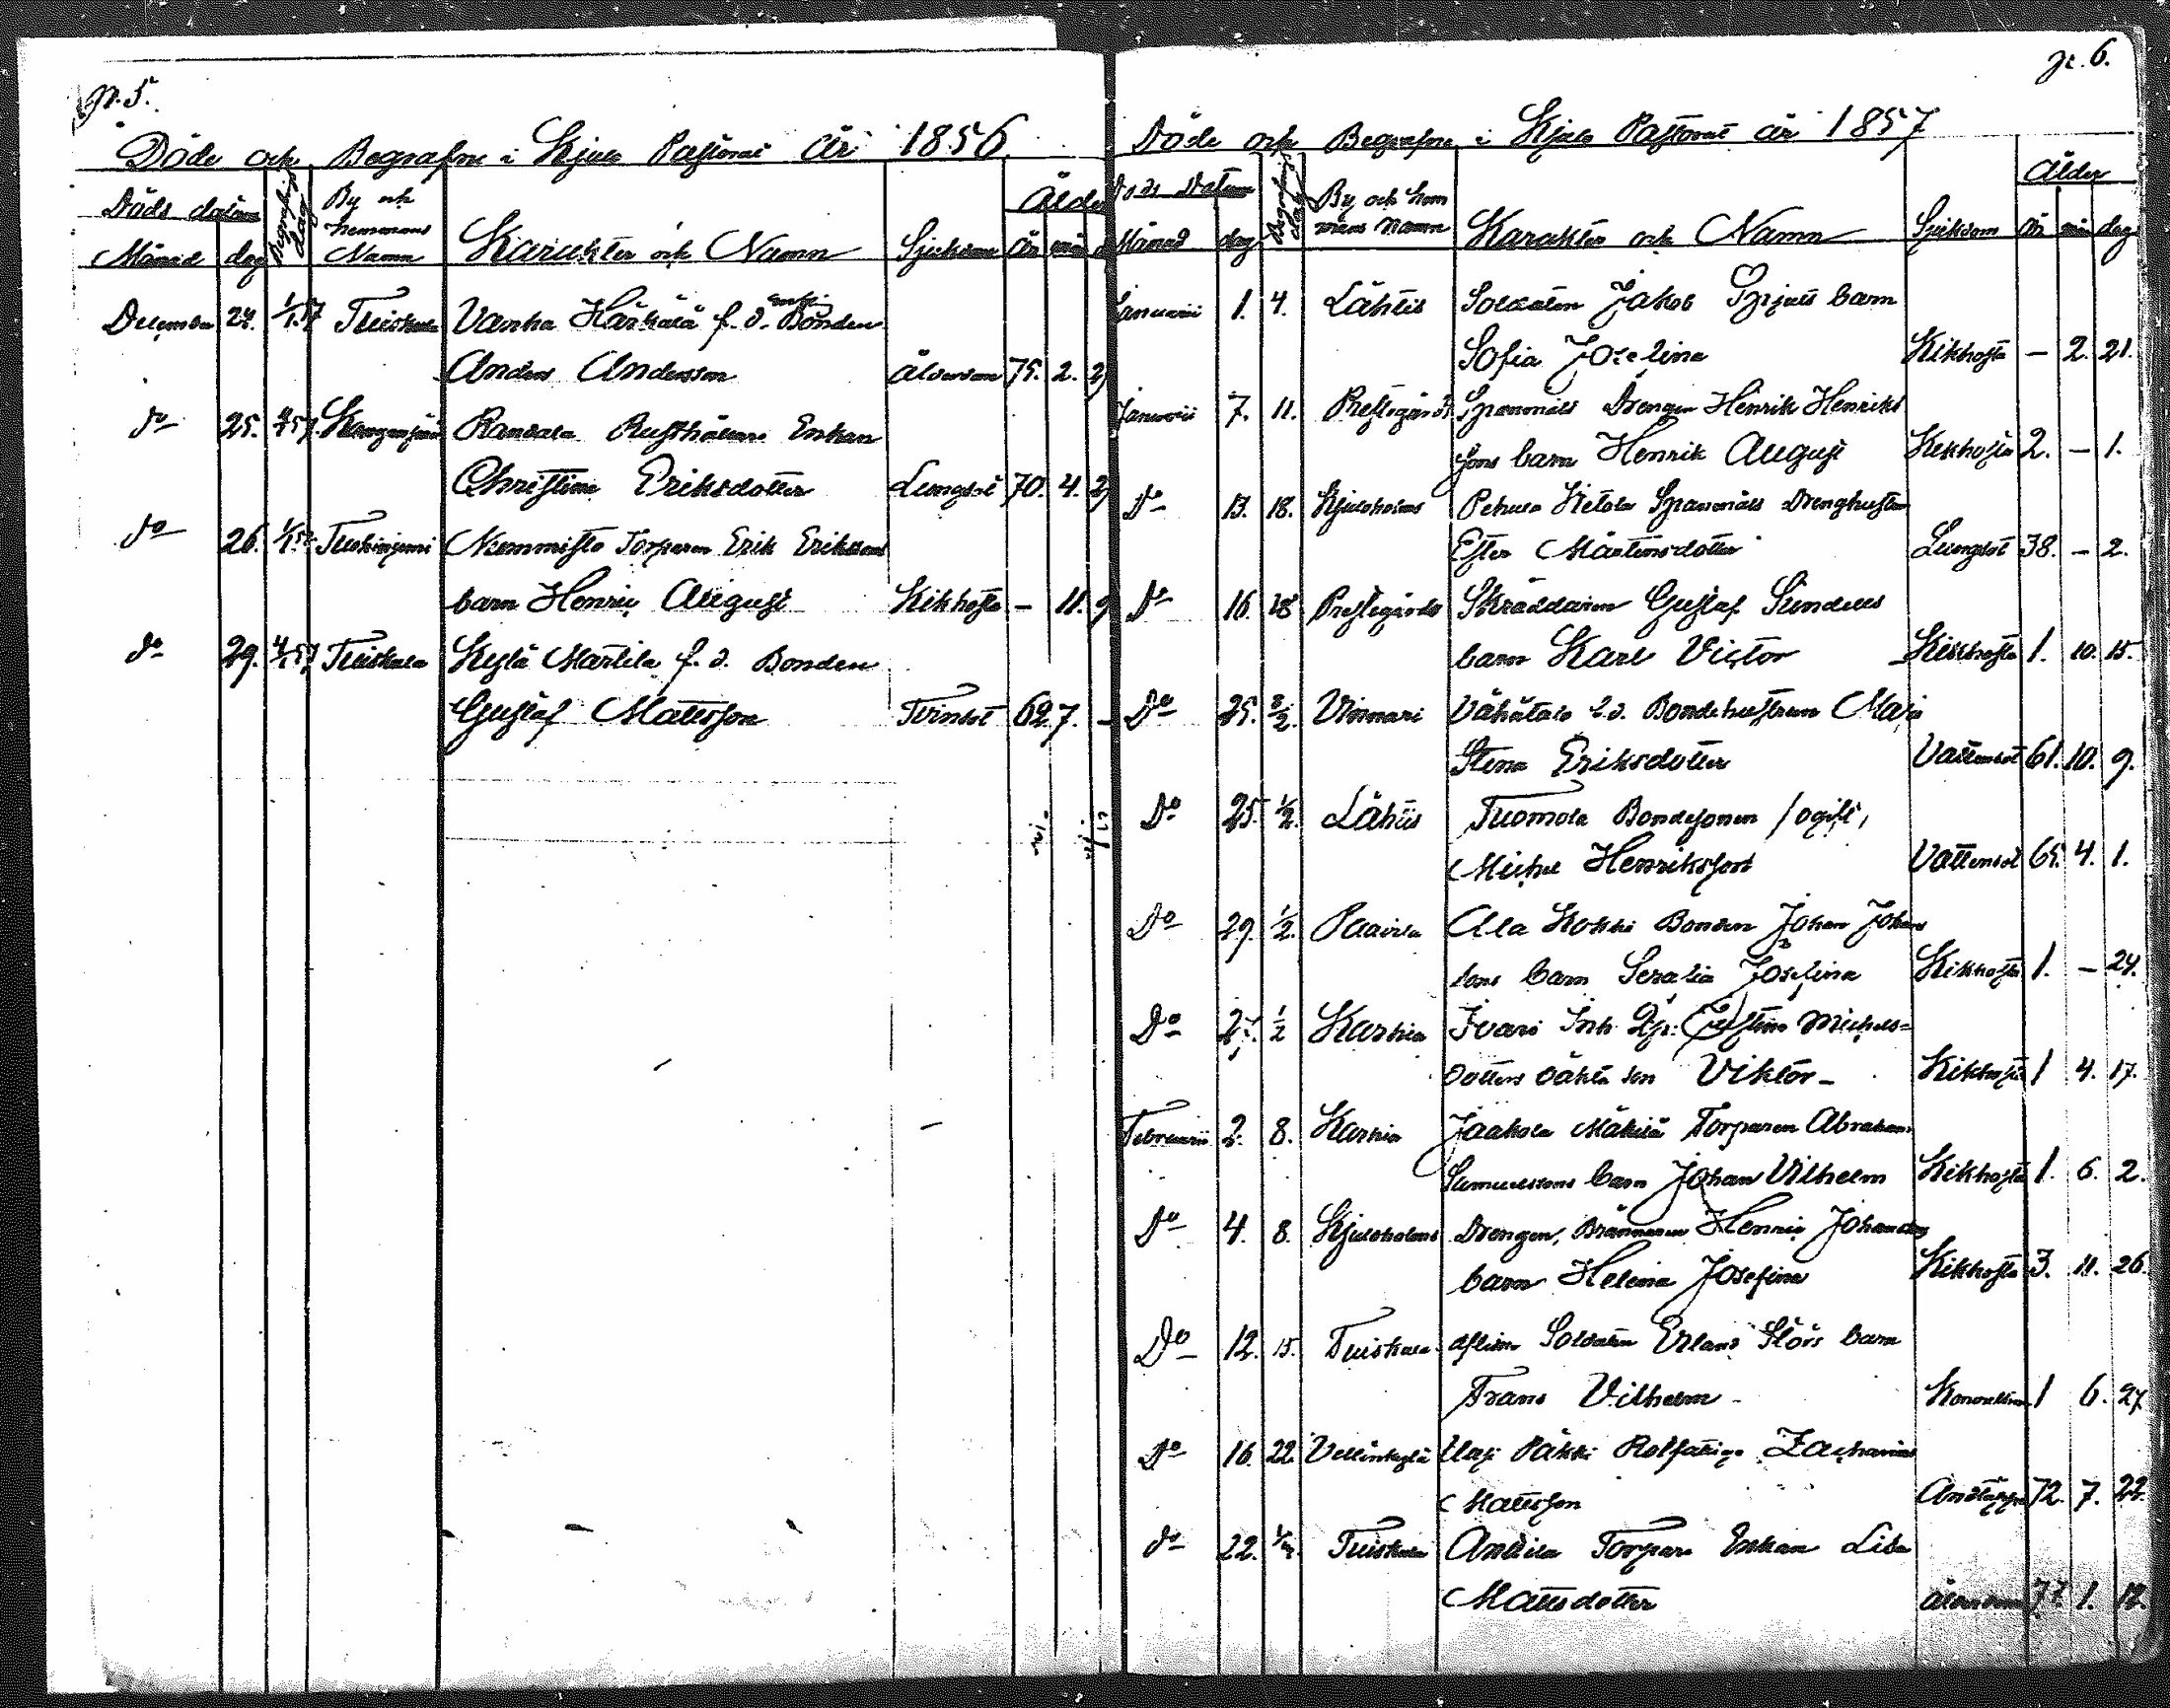 p. 5.
Döde och Begrafne i Kjulo Pastorat År 1856
Döds datum Begrafnings dag By och hemmans Namn Karakter och Namn Sjukdom Ålder
Månad dag år mån
December 24. 1/1.57 Tuiskula Vanha Härkälä f. d. Bonden
Anders Andersson Ålderdom 75. 2. 2
do 25. 57. Randala Rusthållare Enkan
Christina Eriksdotter Lungsot 70. 4. 2
do 26. Niemmistö Torparen Erik Erikssons
barn Henric August Kikhosta - 11. 9
do 29. 57 Tuiskula Kylä Marttila f. d. Bonden
Gustaf Mattsson Tvinsot 62 7. -
p. 6.
Döde och Begrafne i Kjulo Pastorat år 1857
Döds Datum Begrafnings dag By och hem mans Namn Karakter och Namn Sjukdom Ålder
Månad dag år mån dag
Januarii 1. 4. Lähtis Soldaten Jakob barn
Sofia Josefina Kikhosta - 2. 21.
Januarii 7. 11. Prestgårds Spanmåls Drengen Henrik Henriks
sons barn Henrik August Kikhosta 2. - 1.
Do 13. 18. Kjuloholms Spanmåls Drenghustrun
Ester Mårtensdotter Lungsot 38. - 2.
Do 16. 18 Prestgårds Skräddaren Gustaf Sundells
barn Karl Victor Kikhosta 1. 10. 15.
Do 25. 8/2. Vinnari Vähätalo f. d. Bondehustrun Maja
Stina Eriksdotter Vattensot 61. 10. 9.
Do 25. 1/2. Lähtis Tuomola Bondesonen / ogift,
Michel Henriksson Vattensot 65. 4. 1.
Do 29. 1/2. Paavila Ala Kokki Bonden Johan Johans
sons barn Serafia Josefina Kikhosta 1. - 24.
Do 1/2 Karhia Ivari Inh. Pig. Justina Michels=
dotters oäkta son Viktor - Kikhosta 1 4. 17.
Februarii 2. 8. Karhia Jaakola Mäkilä Torparen Abraham
Samuelssons barn Johan Vilhelm Kikhosta 1. 6. 2.
Do 4. 8. Kjuloholms Drengen, Brännaren Henric Johansson
barn Helena Josefina Kikhosta 3. 11. 26.
Do 12. 15. Tuiskula Soldaten Erland Störs barn
Frans Vilhelm - 1 6. 27
Do 16. 22. Vellinkylä Ulasi Päkki Rotfattige Zacharias
Mattsson Andtäppa 72. 7. 22.
do 22. Tuiskula Anttila Torpare Enkan Lisa
Mattsdotter Ålderdom 77. 1. 12.